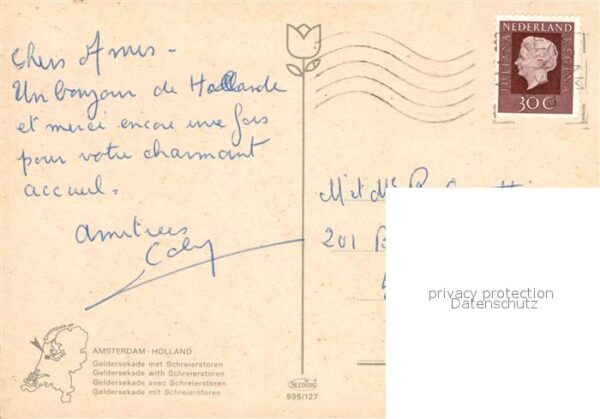 Chers Amis -
Un bonjour de Hollande
et merci encore une fois
pour votre charmant
accueil -
Amitiées
NEDERLAND
JULIANA REGINA
30 C
M et Me
201
privacy protection
Datenschutz
AMSTERDAM - HOLLAND
Geldersekade met Schreierstoren
Geldersekade with Schreierstoren
Geldersekade avec Schreierstoren
Geldersekade mit Schreierstoren
935/127